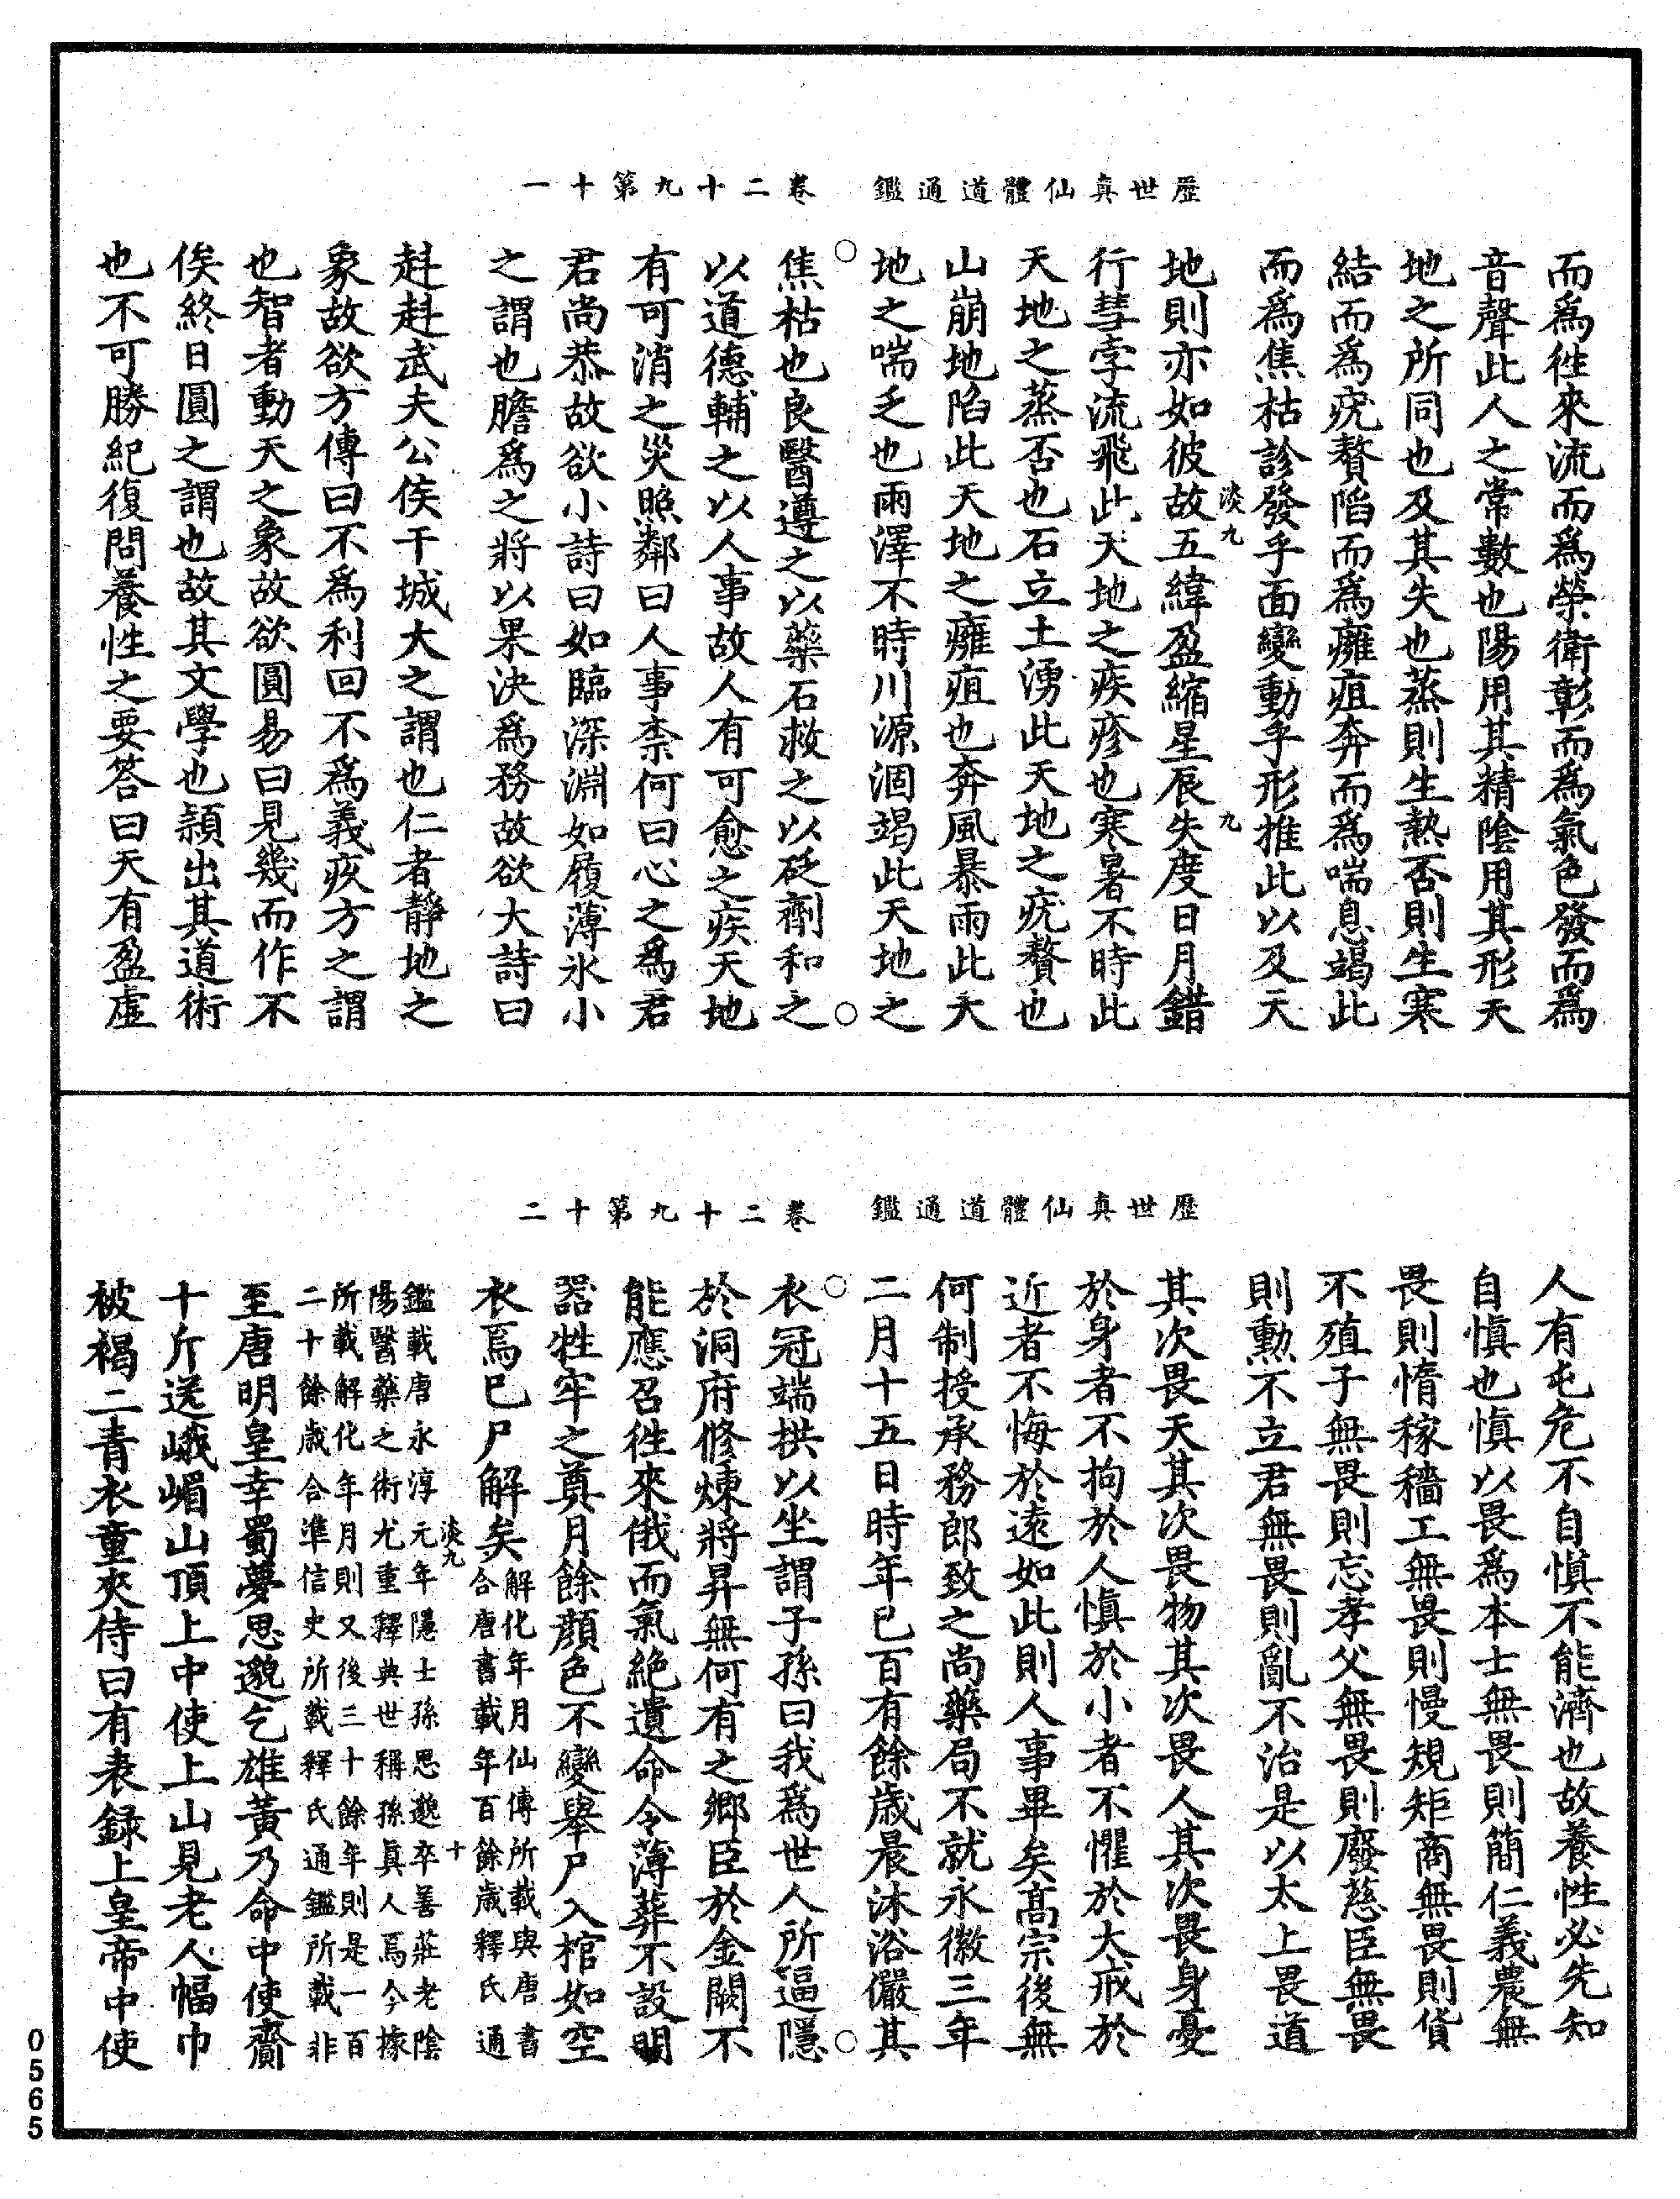 歷世真仙體道通鑑　卷二十九第十一
而爲徃來流而爲榮衛彰而爲氣色發而爲
音聲此人之常數也陽用其精陰用其形天
地之所同也及其失也蒸則生熱否則生寒
結而爲疣贅陷而爲癰疽奔而爲喘息竭此
而爲焦枯診發乎面變動乎形推此以及天
地則亦如彼故五緯盈縮星辰失度日月錯
淡九
九
行彗孛流飛此天地之疾疹也寒暑不時此
天地之蒸否也石立土湧此天地之疣贅也
山崩地陷此天地之癰疽也奔風暴雨此天
地之喘乏也雨澤不時川源涸竭此天地之
焦枯也良醫遵之以藥石救之以砭劑和之
以道德輔之以人事故人有可愈之疾天地
有可消之災照鄰曰人事柰何曰心之爲君
君尚恭故欲小詩曰如臨深淵如履薄氷小
之謂也膽爲之將以果決爲務故欲大詩曰
赳赳武夫公侯干城大之謂也仁者靜地之
象故欲方傳曰不爲利回不爲義疚方之謂
也智者動天之象故欲圓易曰見幾而作不
俟終日圓之謂也故其文學也頴出其道術
也不可勝紀復問養性之要答曰天有盈虛
歷世真仙體道通鑑　卷二十九第十二
人有屯危不自慎不能濟也故養性必先知
自慎也慎以畏爲本士無畏則簡仁義農無
畏則惰稼穡工無畏則慢規矩商無畏則貨
不殖子無畏則忘孝父無畏則廢慈臣無畏
則勳不立君無畏則亂不治是以太上畏道
其次畏天其次畏物其次畏人其次畏身憂
於身者不拘於人慎於小者不懼於大戒於
近者不悔於遠如此則人事畢矣髙宗後無
何制授承務郎致之尚藥局不就永徽三年
二月十五日時年已百有餘歲晨沐浴儼其
衣冠端拱以坐謂子孫曰我爲世人所逼隱
於洞府修煉將昇無何有之鄉臣於金闕不
能應召徃來俄而氣絶遺命令薄葬不設明
器牲牢之奠月餘顔色不變舉尸入棺如空
衣焉已尸解矣解化年月仙傳所載與唐書
合唐書載年百餘歲釋氏通
淡九
十
鑑載唐永淳元年隱士孫思邈卒善莊老陰
陽醫藥之術尤重釋典世稱孫真人焉今據
所載解化年月則又後三十餘年則是一百
二十餘歲合準信史所載釋氏通鑑所載非
至唐明皇幸蜀夢思邈乞雄黃乃命中使齎
十斤送峨嵋山頂上中使上山見老人幅巾
被褐二青衣童夾侍曰有表録上皇帝中使
0565